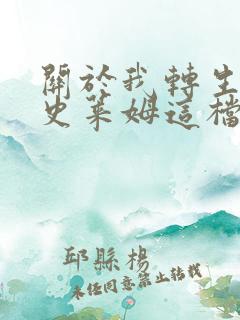 關於我轉生
史萊姆這檔
邱縣楊
未经同意禁止转载